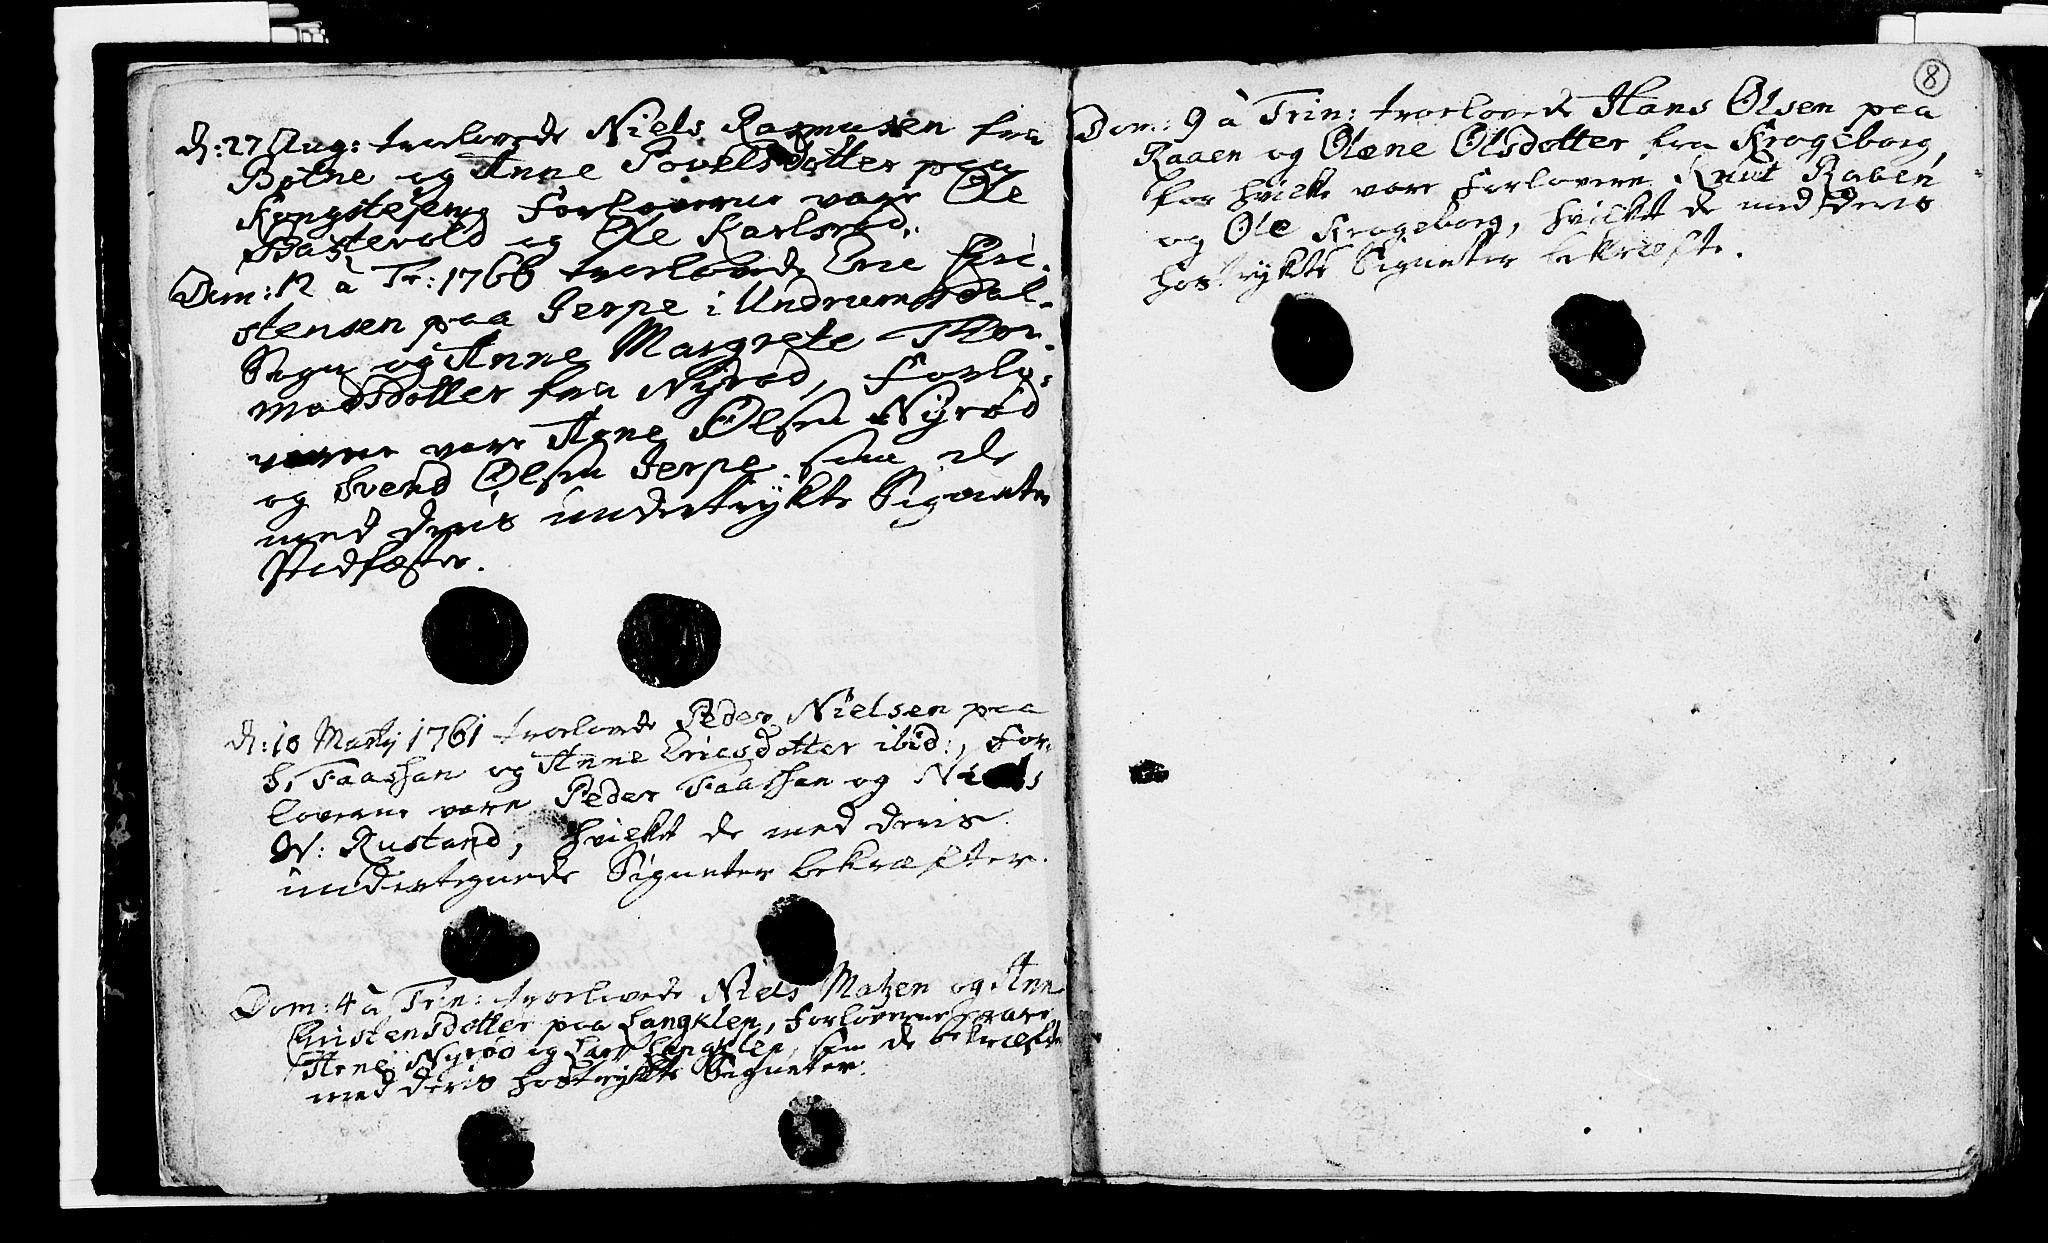 d: 27 Aug: trolovede Niels Rasmusen fra
Bøtne og Anne Povelsdotter paa
Kongstejeng Forloverne vare Ole
Bastevold og Ole Karlsrød.
Dom: 12 à Tr: 1760 trolovede Eric Chri-
stensen paa Jerpe i Undrumsdal-
Sogn og Anne Margrete Thor-
modsdotter fra Nyrød, Forlo-
verne vare Arne Olsen Nyrød
og Svend Olsen Jerpe som de
med deris undertrykte Signeter
Stadfæster.
d: 18 Martij 1761 trolovede Peder Nielsen paa
S. Faashan og Anne Ericsdotter ibid:, For-
loverne vare Peder Faashan og Niels
W: Rustand, hvilket de med deris
undertegnede Signeter bekræfter.
Dom: 4 à Trin: trolovede Niels Matzen og Anne
Christensdotter paa Langklep, Forloverne vare
Arne Nyrød og Lars Langklep, som de bekræfte
med deris hostrykte Signeter.
8
Dom: 9 à Trin: trolovede Hans Olsen paa
Raaen og Olene Olsdotter fra Krogeborg,
for hvilke vare Forlovere Knut Raaen
og Ole Krogeborg, hvilket de med deris
hostrykte Signeter bekræfte.